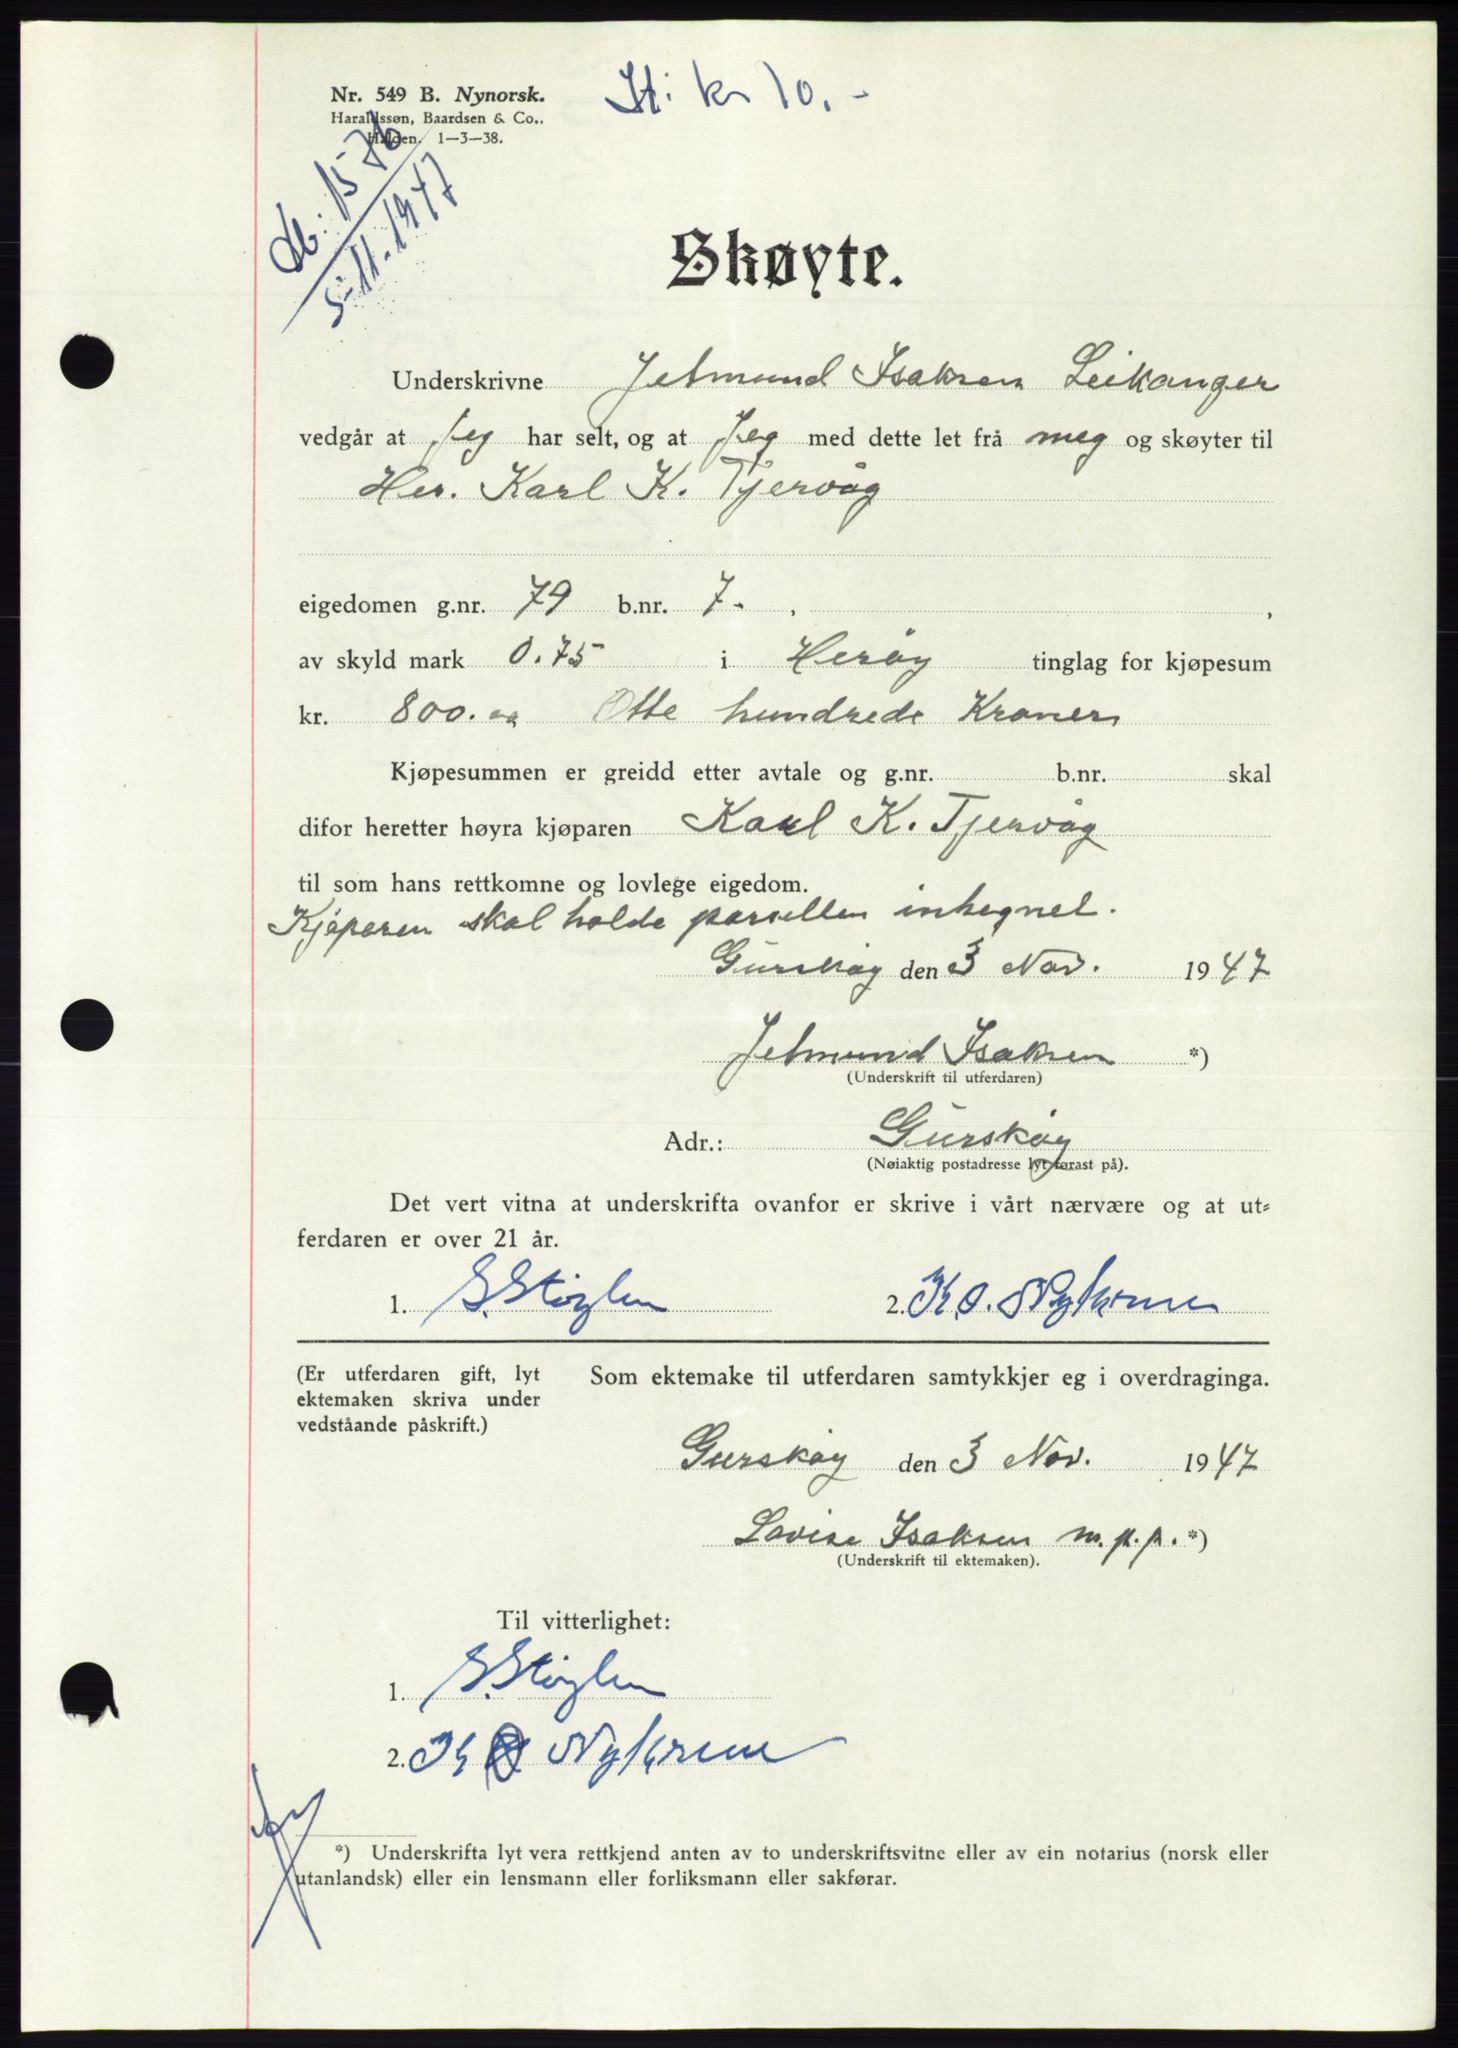 Nr. 549 B. Nynorsk.
Haraldssøn, Baardsen & Co..
Halden. 1—3—38.
St: kr 10.-
db: 1576
5-11-1947
Skøyte.
Underskrivne Jetmund Isaksen Leikanger
vedgår at Jeg har selt, og at Jeg med dette let frå meg og skøyter til
Her. Karl K. Tjervåg
eigedomen g.nr. 79 b.nr. 7. ,
av skyld mark 0.75 i Herøy tinglag for kjøpesum
kr. 800.oo Otte hundrede Kroner
Kjøpesummen er greidd etter avtale og g.nr. b.nr. skal
difor heretter høyra kjøparen Karl K. Tjervåg
til som hans rettkomne og lovlege eigedom.
Kjøparen skal holde parsellen inhegnet.
Gurskøy den 3 Nov. 1947
Jetmund Isaksen *)
(Underskrift til utferdaren)
Adr.: Gurskøy
(Nøiaktig postadresse lyt førast på).
Det vert vitna at underskrifta ovanfor er skrive i vårt nærvære og at ut-
ferdaren er over 21 år.
1. S. Støylen 2. K. O. Nykrem
(Er utferdaren gift, lyt
ektemaken skriva under
vedståande påskrift.)
Som ektemake til utferdaren samtykkjer eg i overdraginga.
Gurskøy den 3 Nov. 1947
Lovise Isaksen m.p.p. *)
(Underskrift til ektemaken).
Til vitterlighet:
1. S. Støylen
2. K O Nykrem
*) Underskrifta lyt vera rettkjend anten av to underskriftsvitne eller av ein notarius (norsk eller
utanlandsk) eller ein lensmann eller forliksmann eller sakførar.